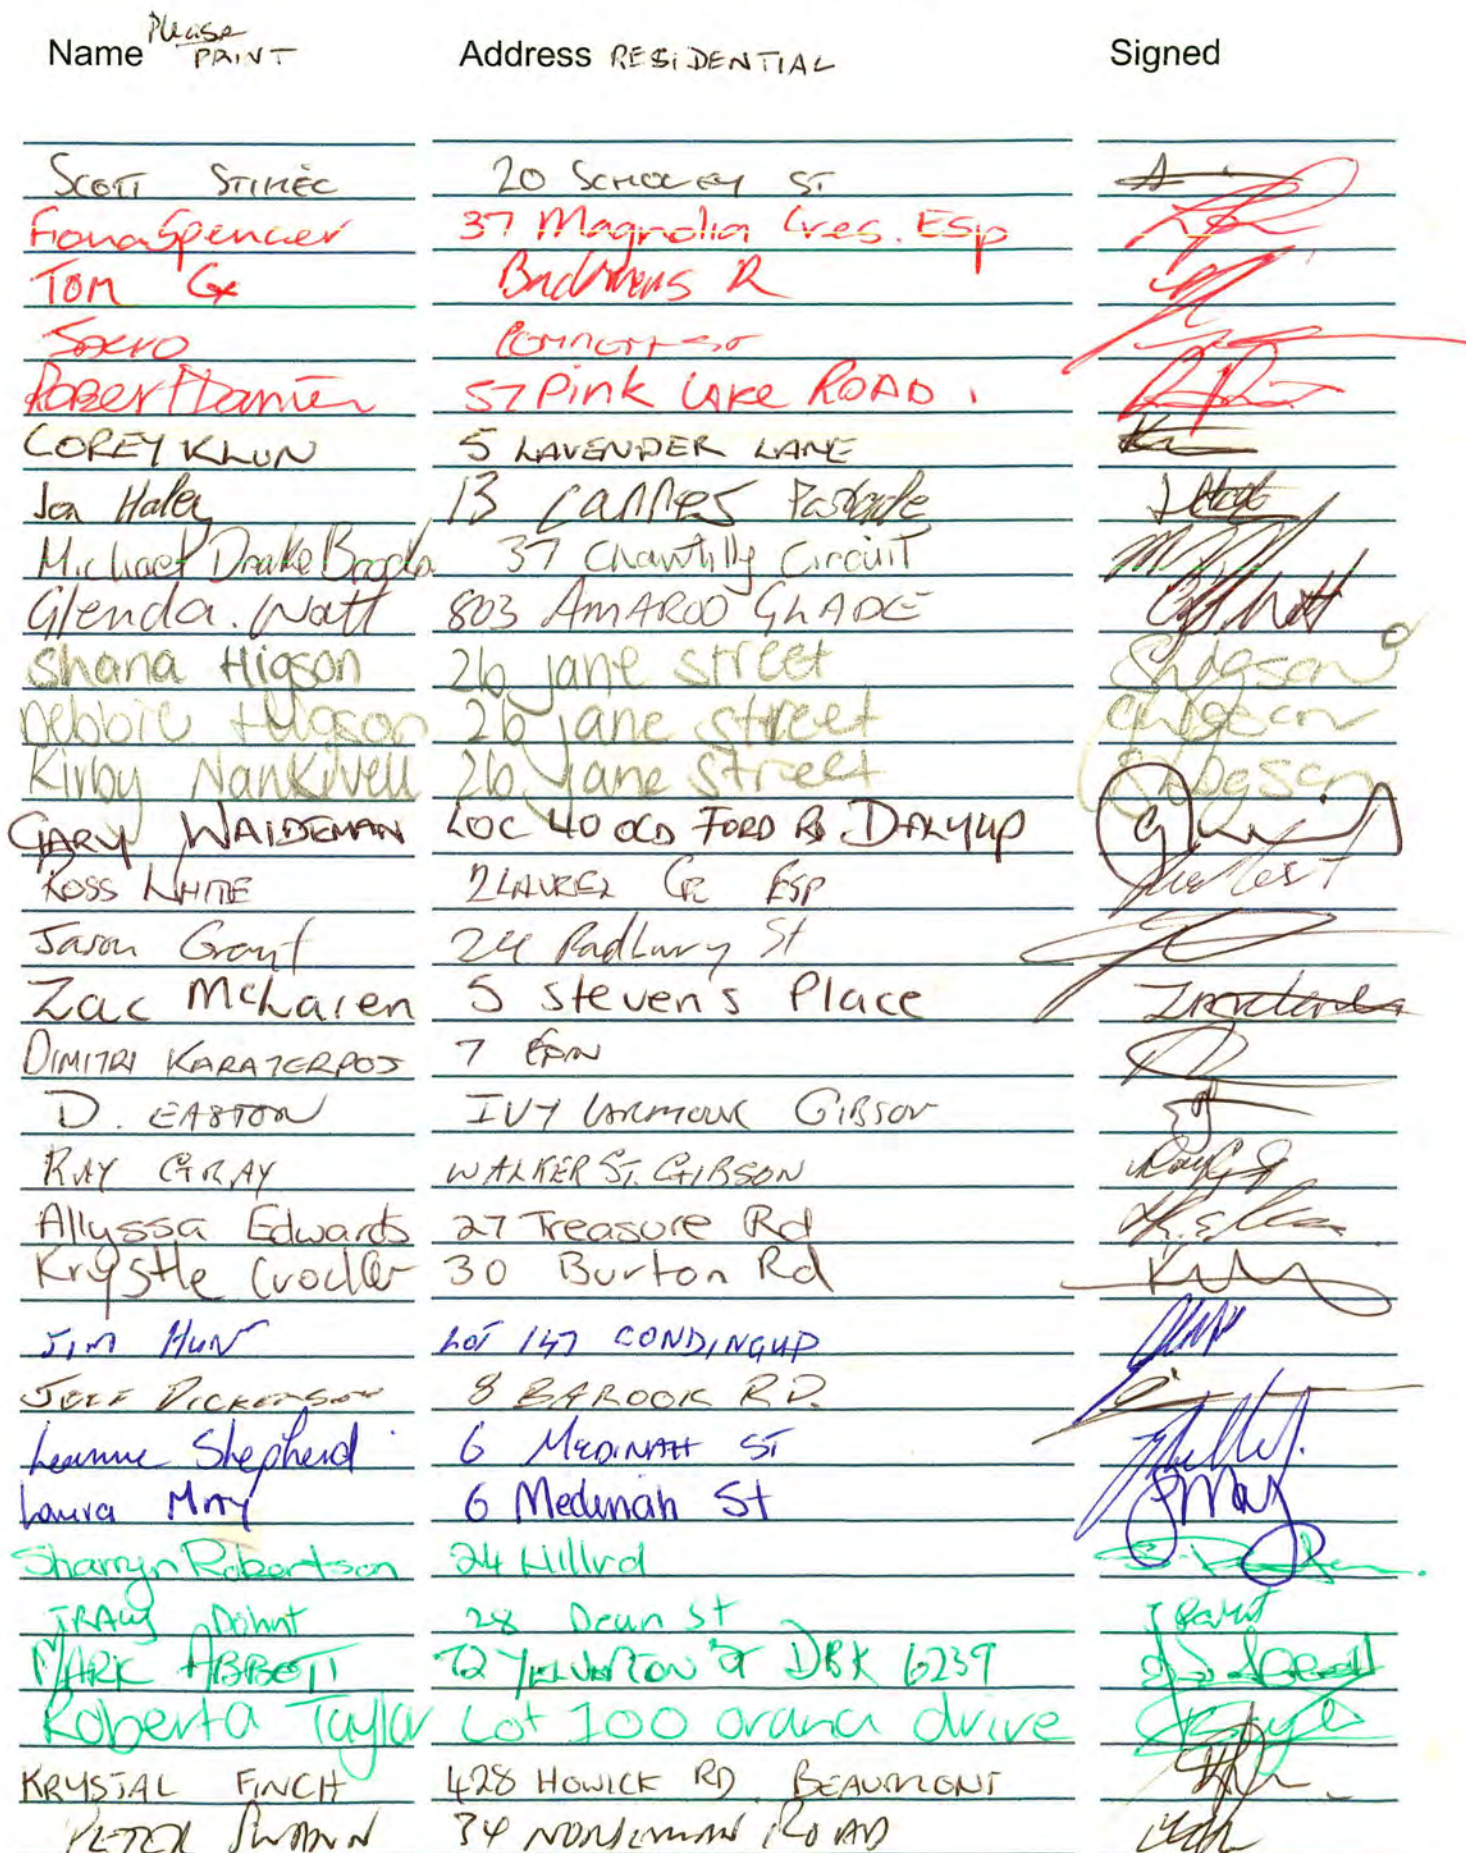 Name Please PRINT Address RESiDENTIAL Signed
SCOTT STIMEC 20 SCHOOLEY ST
Fiona Spencer 37 Magnolia Cres. Esp
TOM R
57 Pink LAKE ROAD.
COREY KLUN 5 LAVENDER LANE
Jon Haley 13 Cannes
Michael Drake 37 Chantilly Circuit
Glenda. Watt 803 AMAROO GLADE
Shana Higson 26 jane street
Debbie Higson 26 jane street
Kirby Nankivell 26 jane street
GARY WAIDEMAN LOC 40 OLD FORD Rd DALYUP
ROSS WHITE 2 LAUREL CR ESP
Jason Grant 24 Radbury St
Zac McLaren 5 Steven's Place
DIMITRI KARATERPOS 7
D. EASTON IVY GIBSON
RAY GRAY WALKER ST. GIBSON
Allyssa Edwards 27 Treasure Rd
Krystle 30 Burton Rd
JIM HUNT LOT 147 CONDINGUP
JEFF DICKENSON 8 BAROOK RD.
Leanne Shepherd 6 MEDINAH ST
Laura May 6 Medinah St
Sharryn Robertson 24 Hill rd
TRACY Dohnt 28 Dean St
MARK ABBOTT 72 YELVERTON DBK 6239
Roberta Taylor Lot 100 orana drive
KRYSTAL FINCH 428 HOWICK RD BEAUMONT
PETER SWANN 34 ROAD